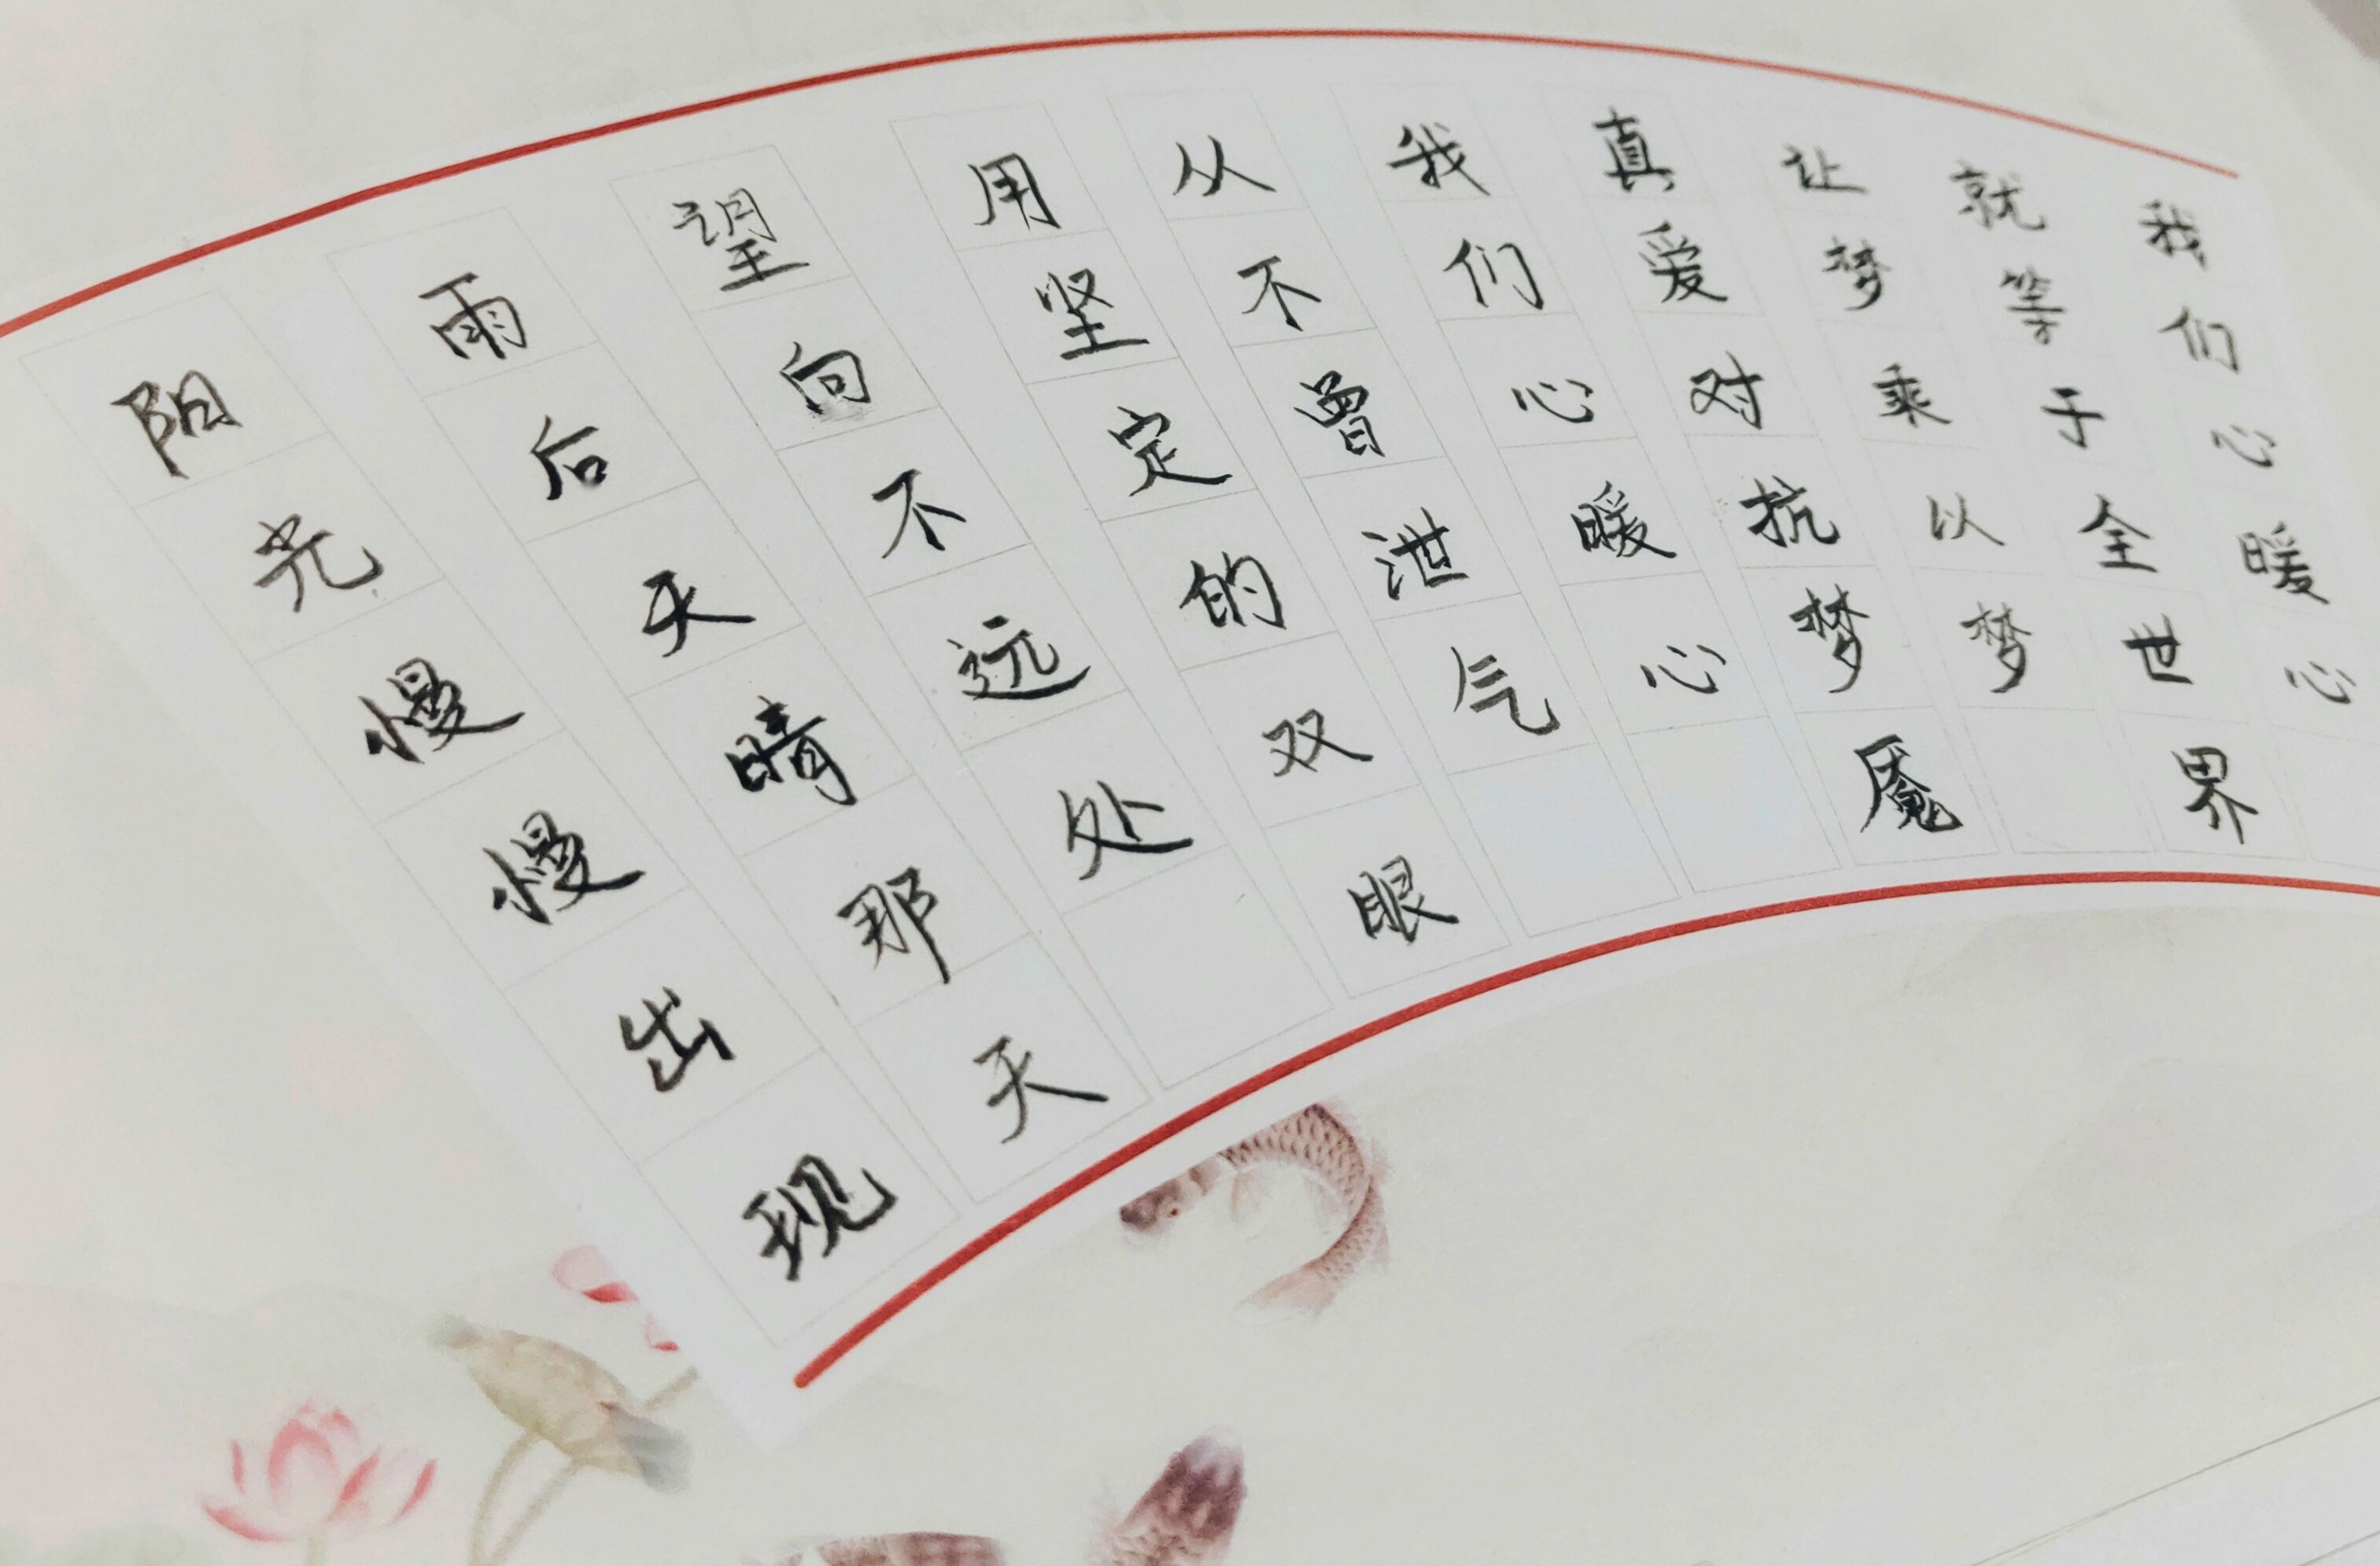 阳光慢慢出现
雨后天晴那天
望向不远处
用坚定的双眼
从不曾泄气
我们心暖心
真爱对抗梦魇
让梦乘以梦
就等于全世界
我们心暖心